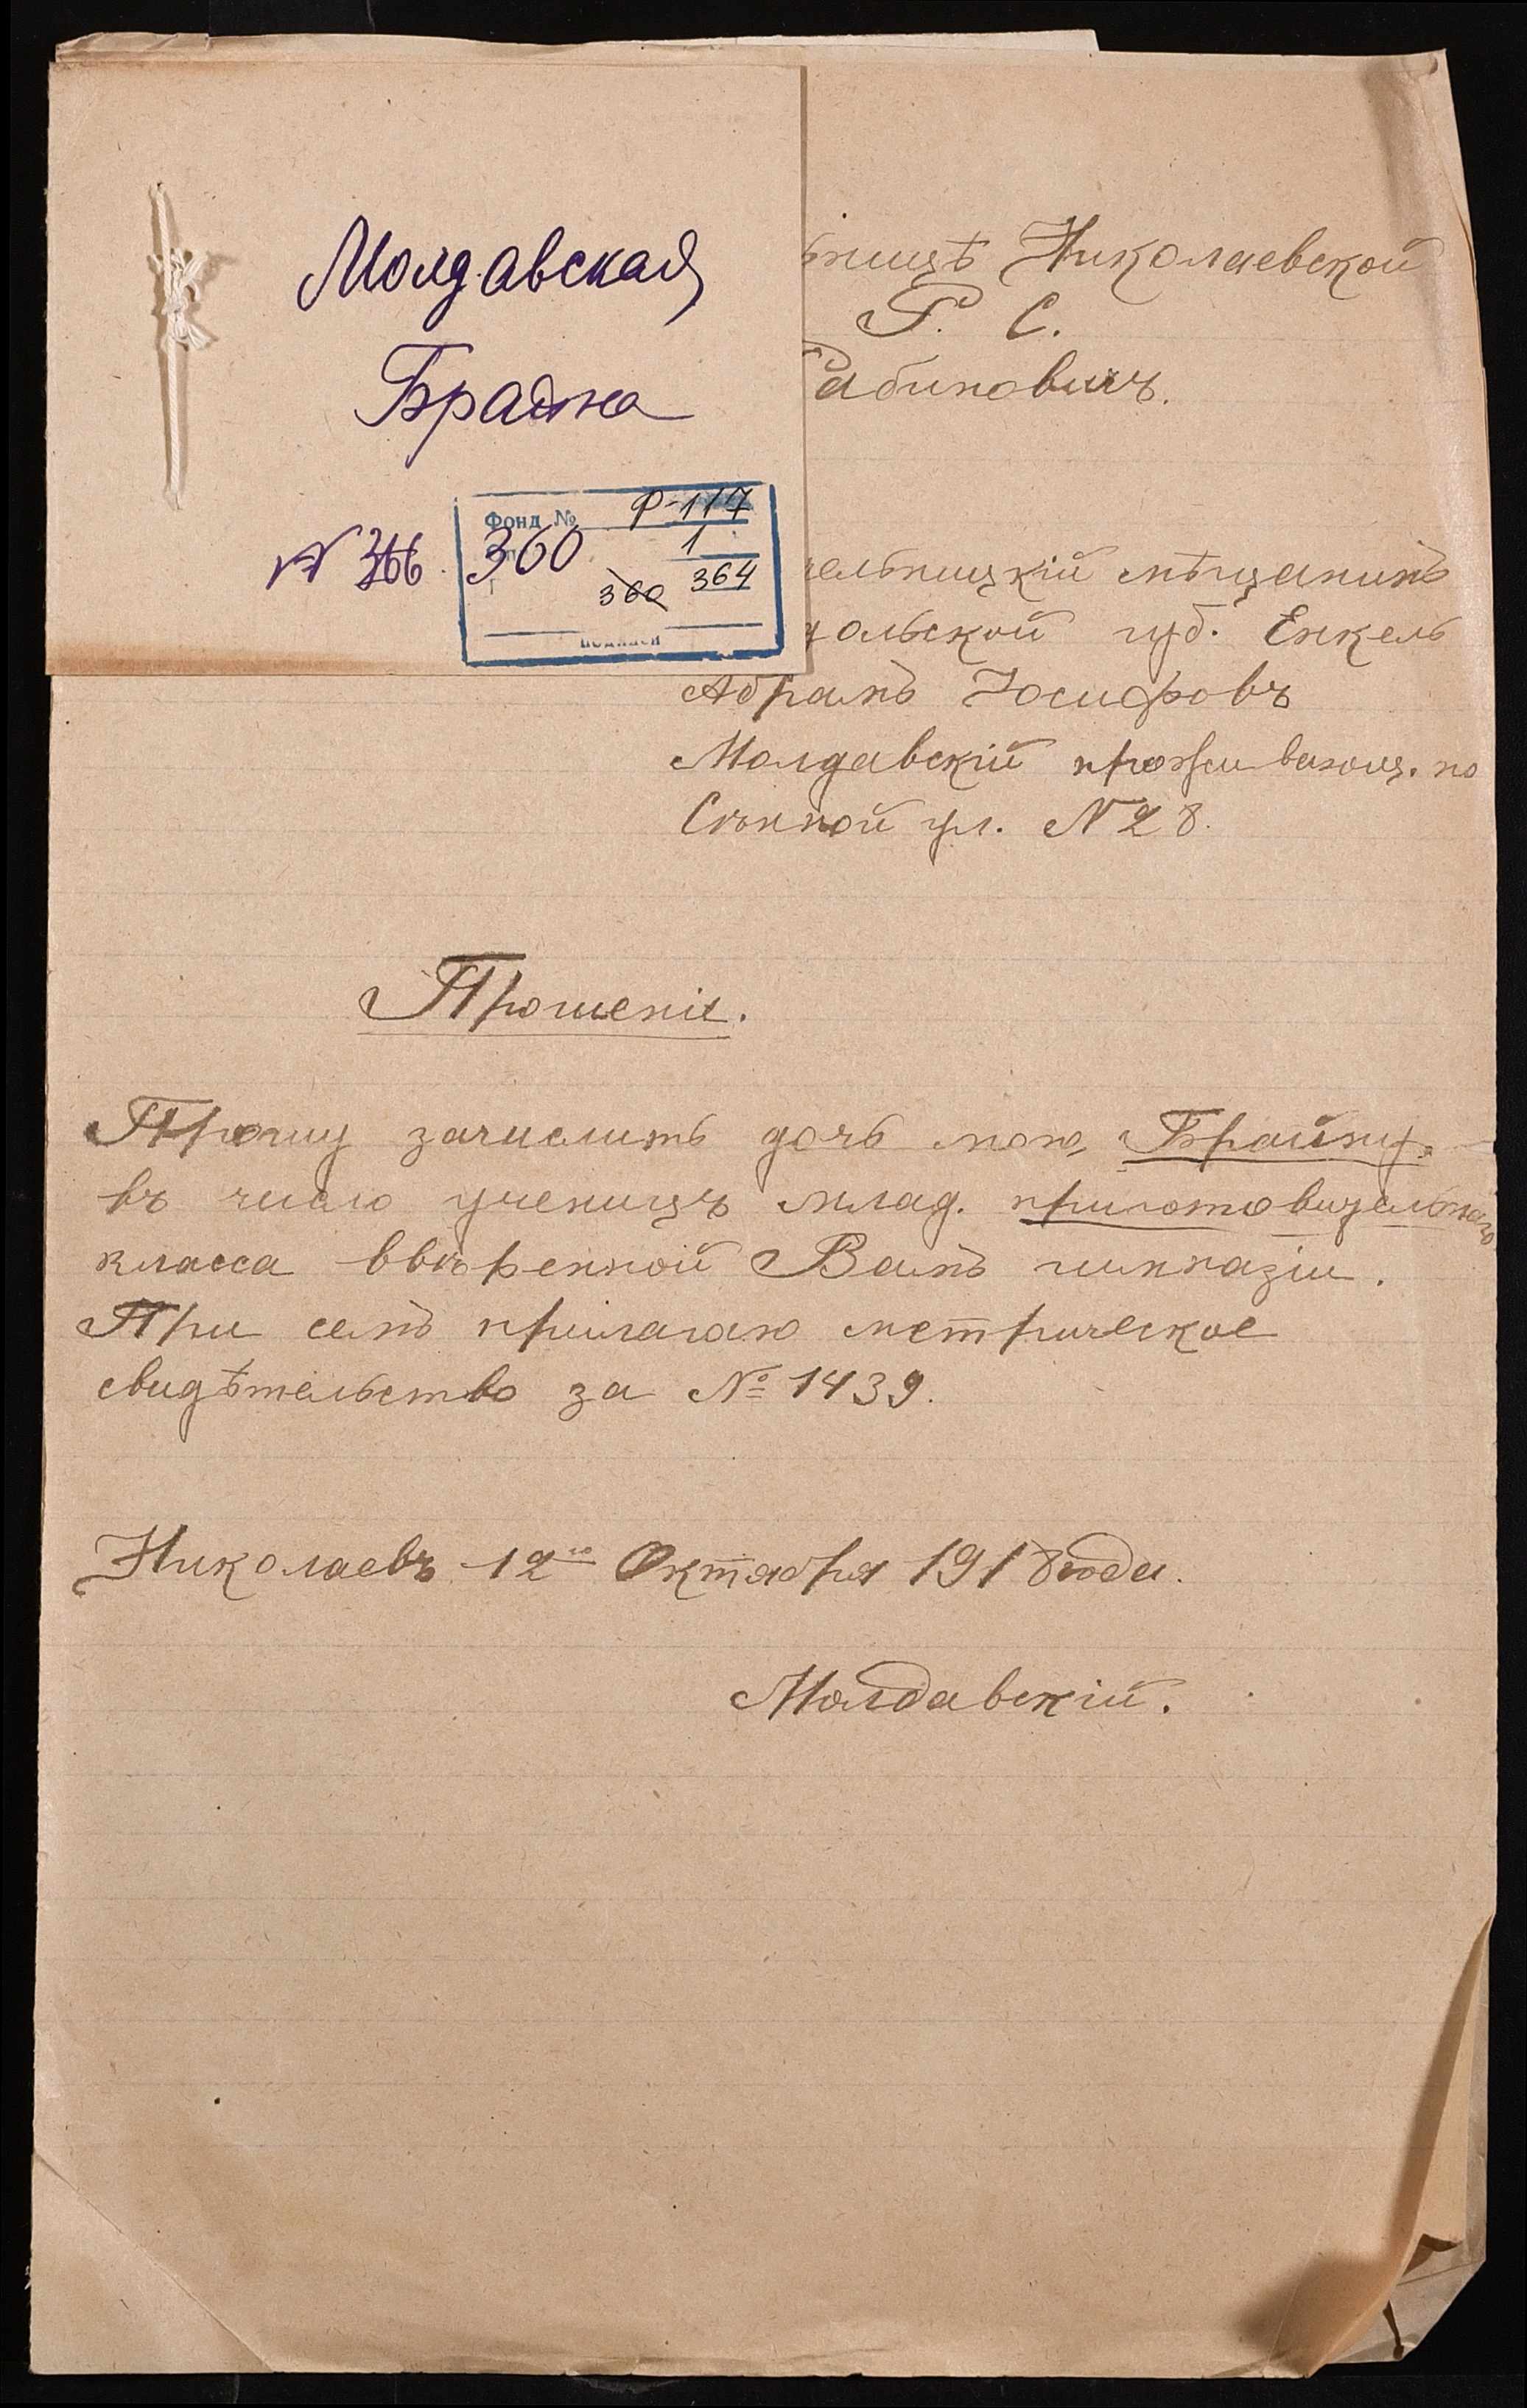 Молдавская
Брайна
N 366. 360
Фонд № Р-117
1
360 364
ьницѣ Николаевской
Р. С.
Рабиновичъ.
ельницкій мѣщанинъ
дольской губ. Енкель
Абрамъ Іосифовъ
Молдавскій проживающ. по
Сѣнной ул. N 28.
Прошеніе.
Прошу зачислить дочь мою, Брайну,
въ число ученицъ млад. приготовительнаго
класса ввѣренной Вамъ гимназіи.
При семъ прилагаю метрическое
свидѣтельство за № 1439.
Николаевъ 12го Октября 1918 года.
Молдавскій.